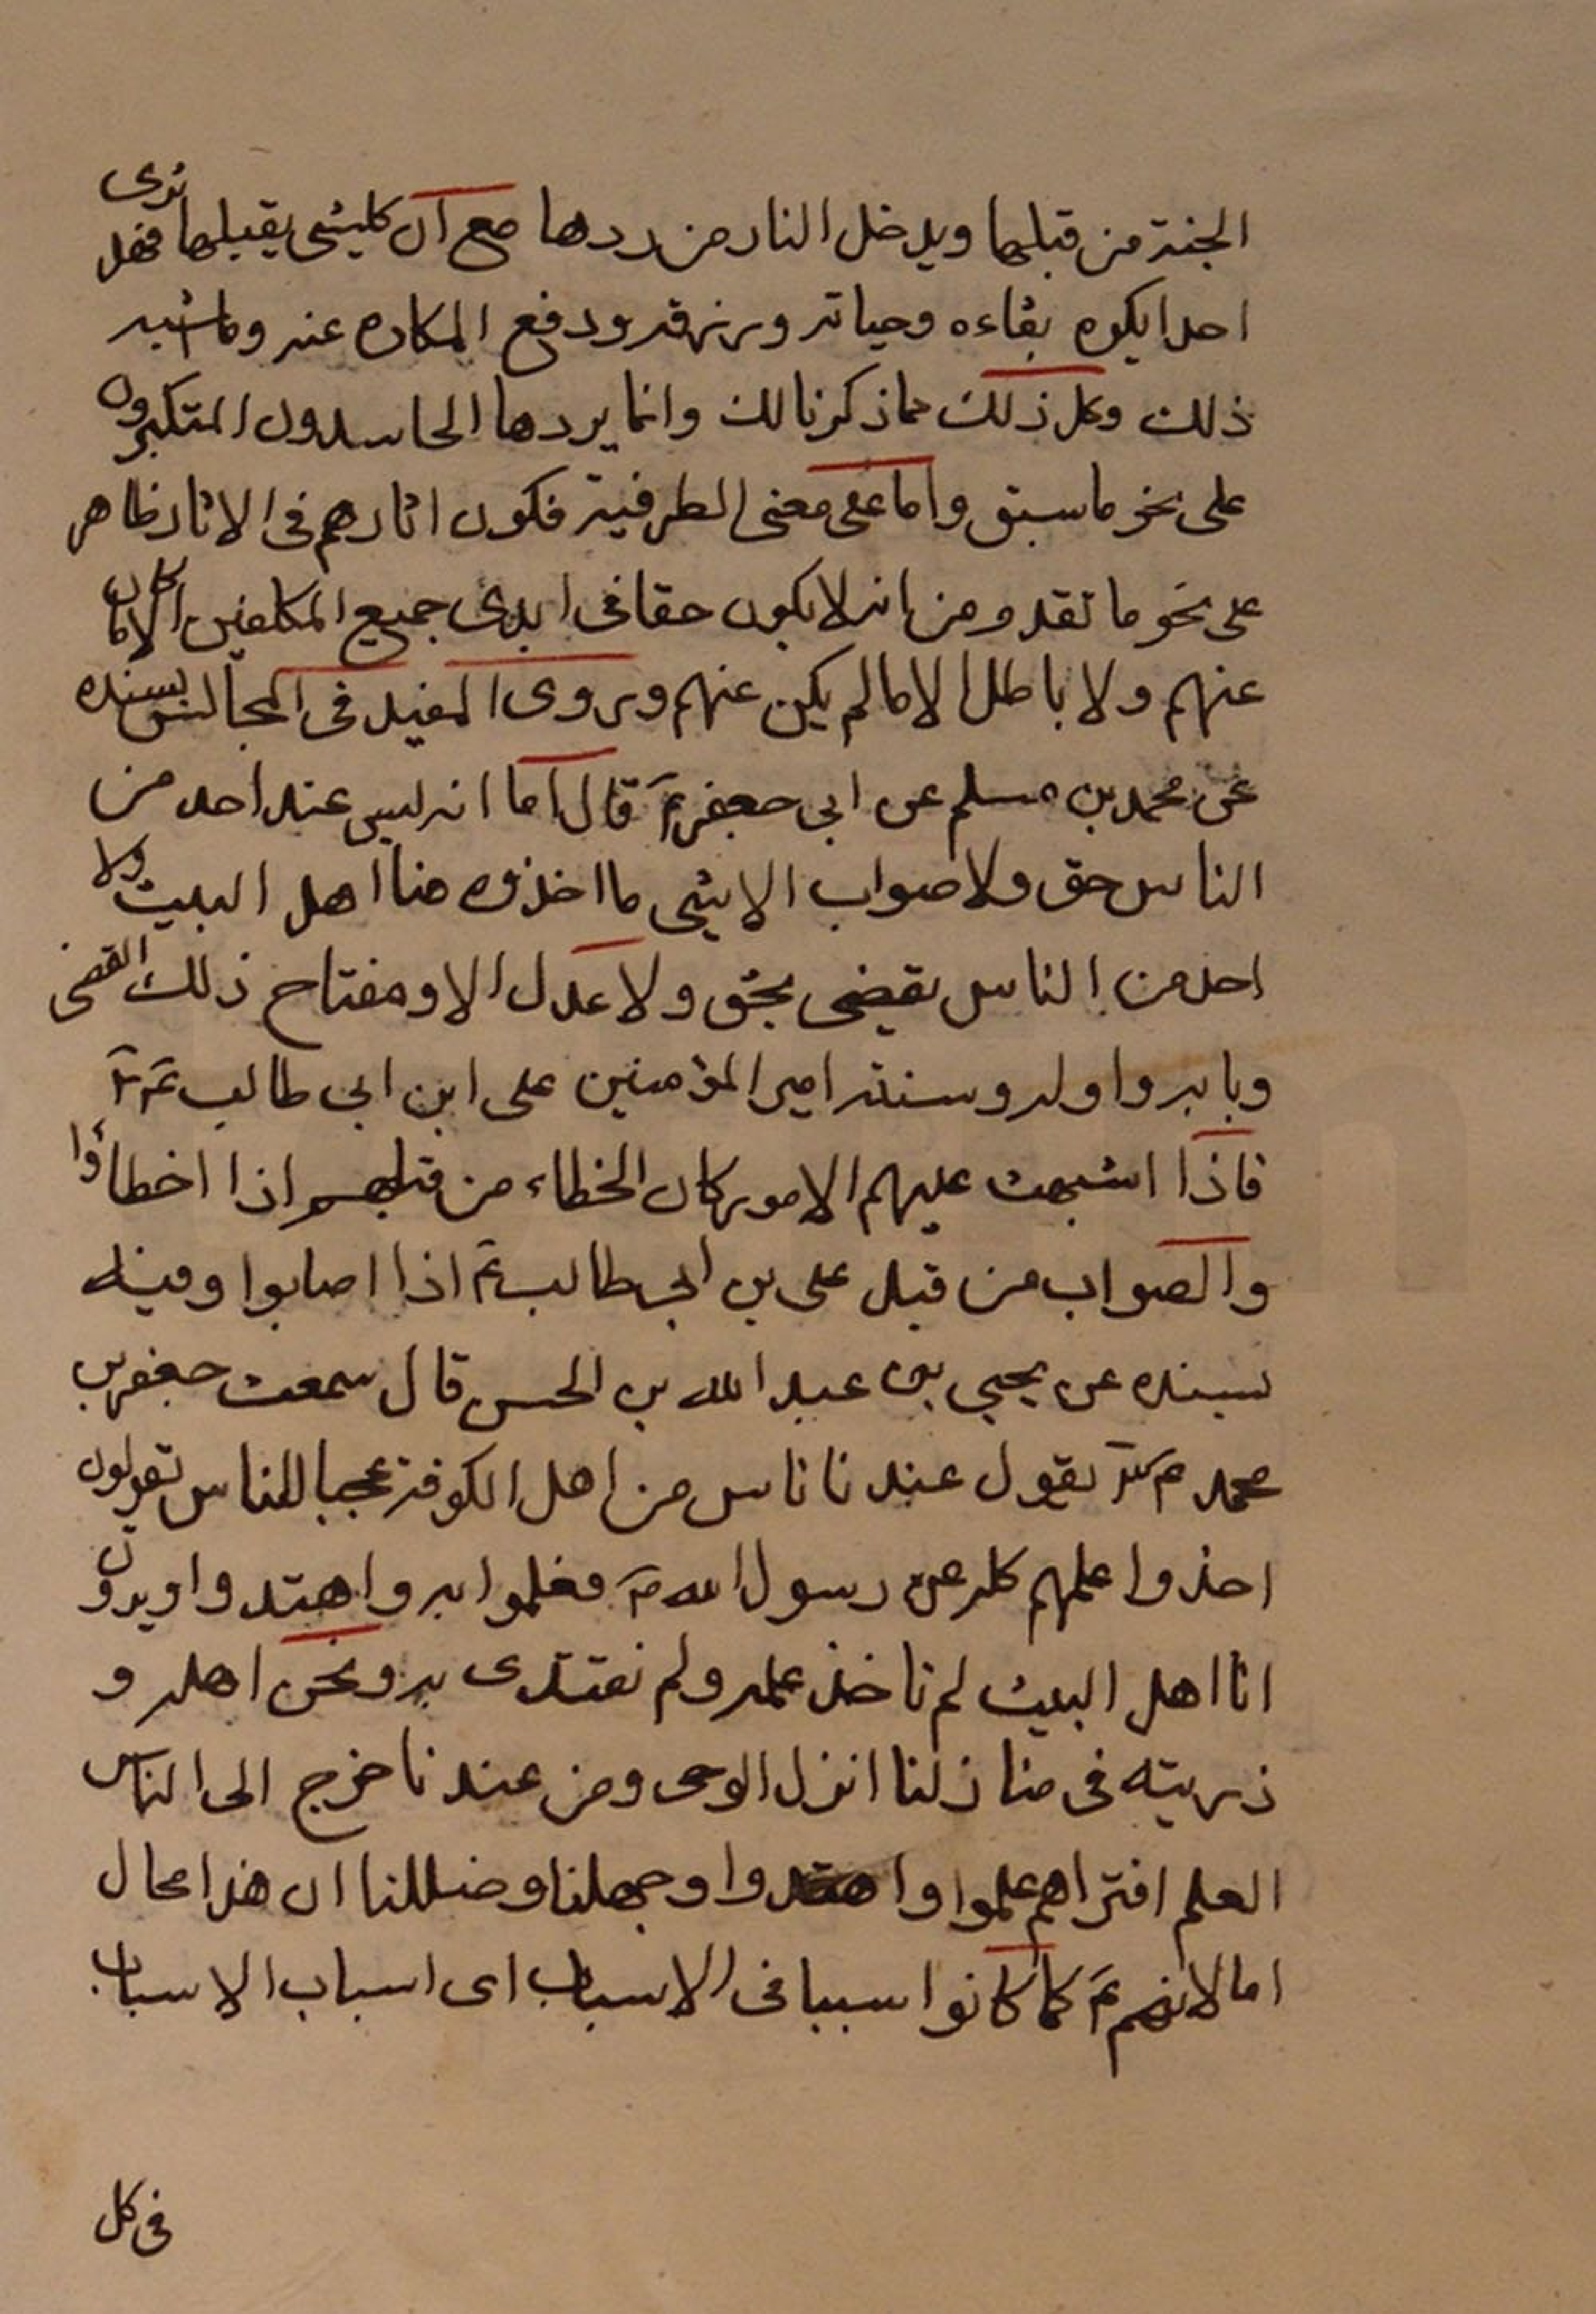 الجنة من قبلها ويدخل النار من ردها مع ان كلشئ يقبلها فهل ترى
احدا يكره بقاءه وحياته ورزقه ودفع المكاره عنه وما اشبه
ذلك وكل ذلك مما ذكرنا لك وانما يردها الحاسدون المتكبرون
على نحو ما سبق واما على معنى الظرفية فكون اثارهم فى الاثار ظاهر
على نحو ما تقدم من انه لا يكون حقا فى ايدى جميع المكلفين الا ما كان
عنهم ولا باطل الا ما لم يكن عنهم وروى المفيد فى المجالس بسنده
عن محمد بن مسلم عن ابى جعفر ع قال اما انه ليس عند احد من
الناس حق ولا صواب الا شئ ما اخذوه منا اهل البيت ولا
احد من الناس يقضى بحق ولا عدل الا ومفتاح ذلك القضى
وبابه واوله وسنته امير المؤمنين على ابن ابى طالب ع
فاذا اشبهت عليهم الامور كان الخطاء من قبلهم اذا اخطاؤا
والصواب من قبل على بن ابى طالب ع اذا اصابوا وفيه
بسنده عن يحيى بن عبد الله بن الحسن قال سمعت جعفر بن
محمد ع يقول عنده ناس من اهل الكوفة عجبا للناس يقولون
اخذوا علمهم كله عن رسول الله ص فعلموا به واهتدوا ويرون
انا اهل البيت لم ناخذ علمه ولم نهتدى به ونحن اهله و
ذريته فى منازلنا انزل الوحى ومن عندنا خرج الى الناس
العلم افتراهم علموا واهتدوا وجهلنا وضللنا ان هذا محال
اما لانهم ع كما كانوا سببا فى الاسباب اى اسباب الاسباب
فى كل